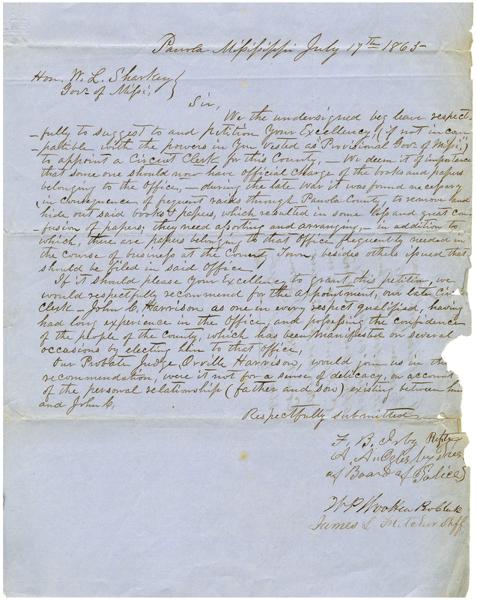 Panola Mississippi July 17th 1865
Hon. W. L. Sharkey
Gov. of Missi;
Sir,
We the undersigned beg leave respect-
-fully to suggest to and petition Your Excellency, (if not incom-
-patible with the powers in You vested as Provisional Gov. of Missi;)
to appoint a Circuit Clerk for this County, - We deem it of importance
that some one should now have official charge of the books and papers
belonging to the Office, - during the late war it was found necessary
in consequence of frequent raids through Panola County, to remove and
hide out said books & papers, which resulted in some loss and great con-
fusion of papers; they need assorting and arranging, - in addition to
which, there are papers belonging to that Office frequently needed in
the course of business at the County Town, besides others issued that
should be filed in said Office.
If it should please Your Excellency to grant this petition, we
would respectfully recommend for the appointment, our late Circ.
Clerk - John C. Harrison, as one in every respect qualified, having
had long experience in the Office, and possessing the confidence
of the people of the County, which has been manifested on several
occasions by electing him to that Office,
Our Probate Judge, Orville Harrison, would join us in this
recommendation, were it not for a sense of delicacy, on account
of the personal relationship (father and son) existing between him
and John C.
Respectfully submitted
F. B. Irby
of Board of Police
James S.